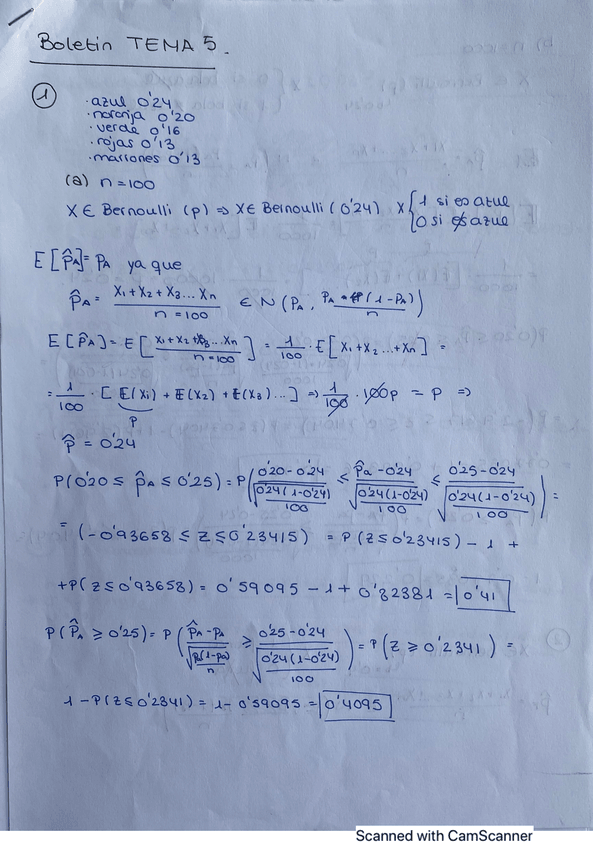 Boletin TEMA 5.
1
· azul 0'24
· naranja 0'20
· verde 0'16
· rojas 0'13
· marrones 0'13
(a) n=100
X ∈ Bernoulli (p) ⇒ X ∈ Bernoulli (0'24) X { 1 si es azul
0 si es azul
E[p̂A] = pA ya que
p̂A = (X1 + X2 + X3 ... Xn) / (n = 100) ∈ N (pA, pA (1 - pA) / n)
E[p̂A] = E[(X1 + X2 + X3 ... Xn) / (n = 100)] = 1/100 · E[X1 + X2 ... + Xn] =
= 1/100 · [E(Xi) + E(X2) + E(X3) ...] ⇒ 1/100 · 100p = p ⇒
p
p̂ = 0'24
P(0'20 ≤ p̂A ≤ 0'25) = P( (0'20 - 0'24) / √(0'24(1-0'24) / 100) ≤ (p̂a - 0'24) / √(0'24(1-0'24) / 100) ≤ (0'25 - 0'24) / √(0'24(1-0'24) / 100) ) =
= (-0'93658 ≤ Z ≤ 0'23415) = P(Z ≤ 0'23415) - 1 +
+ P(Z ≤ 0'93658) = 0'59095 - 1 + 0'82381 = 0'41
P(p̂A ≥ 0'25) = P( (p̂A - pA) / √(pa(1-pa) / n) ≥ (0'25 - 0'24) / √(0'24(1-0'24) / 100) ) = P(Z ≥ 0'2341) =
1 - P(Z ≤ 0'2341) = 1 - 0'59095 = 0'4095
Scanned with CamScanner